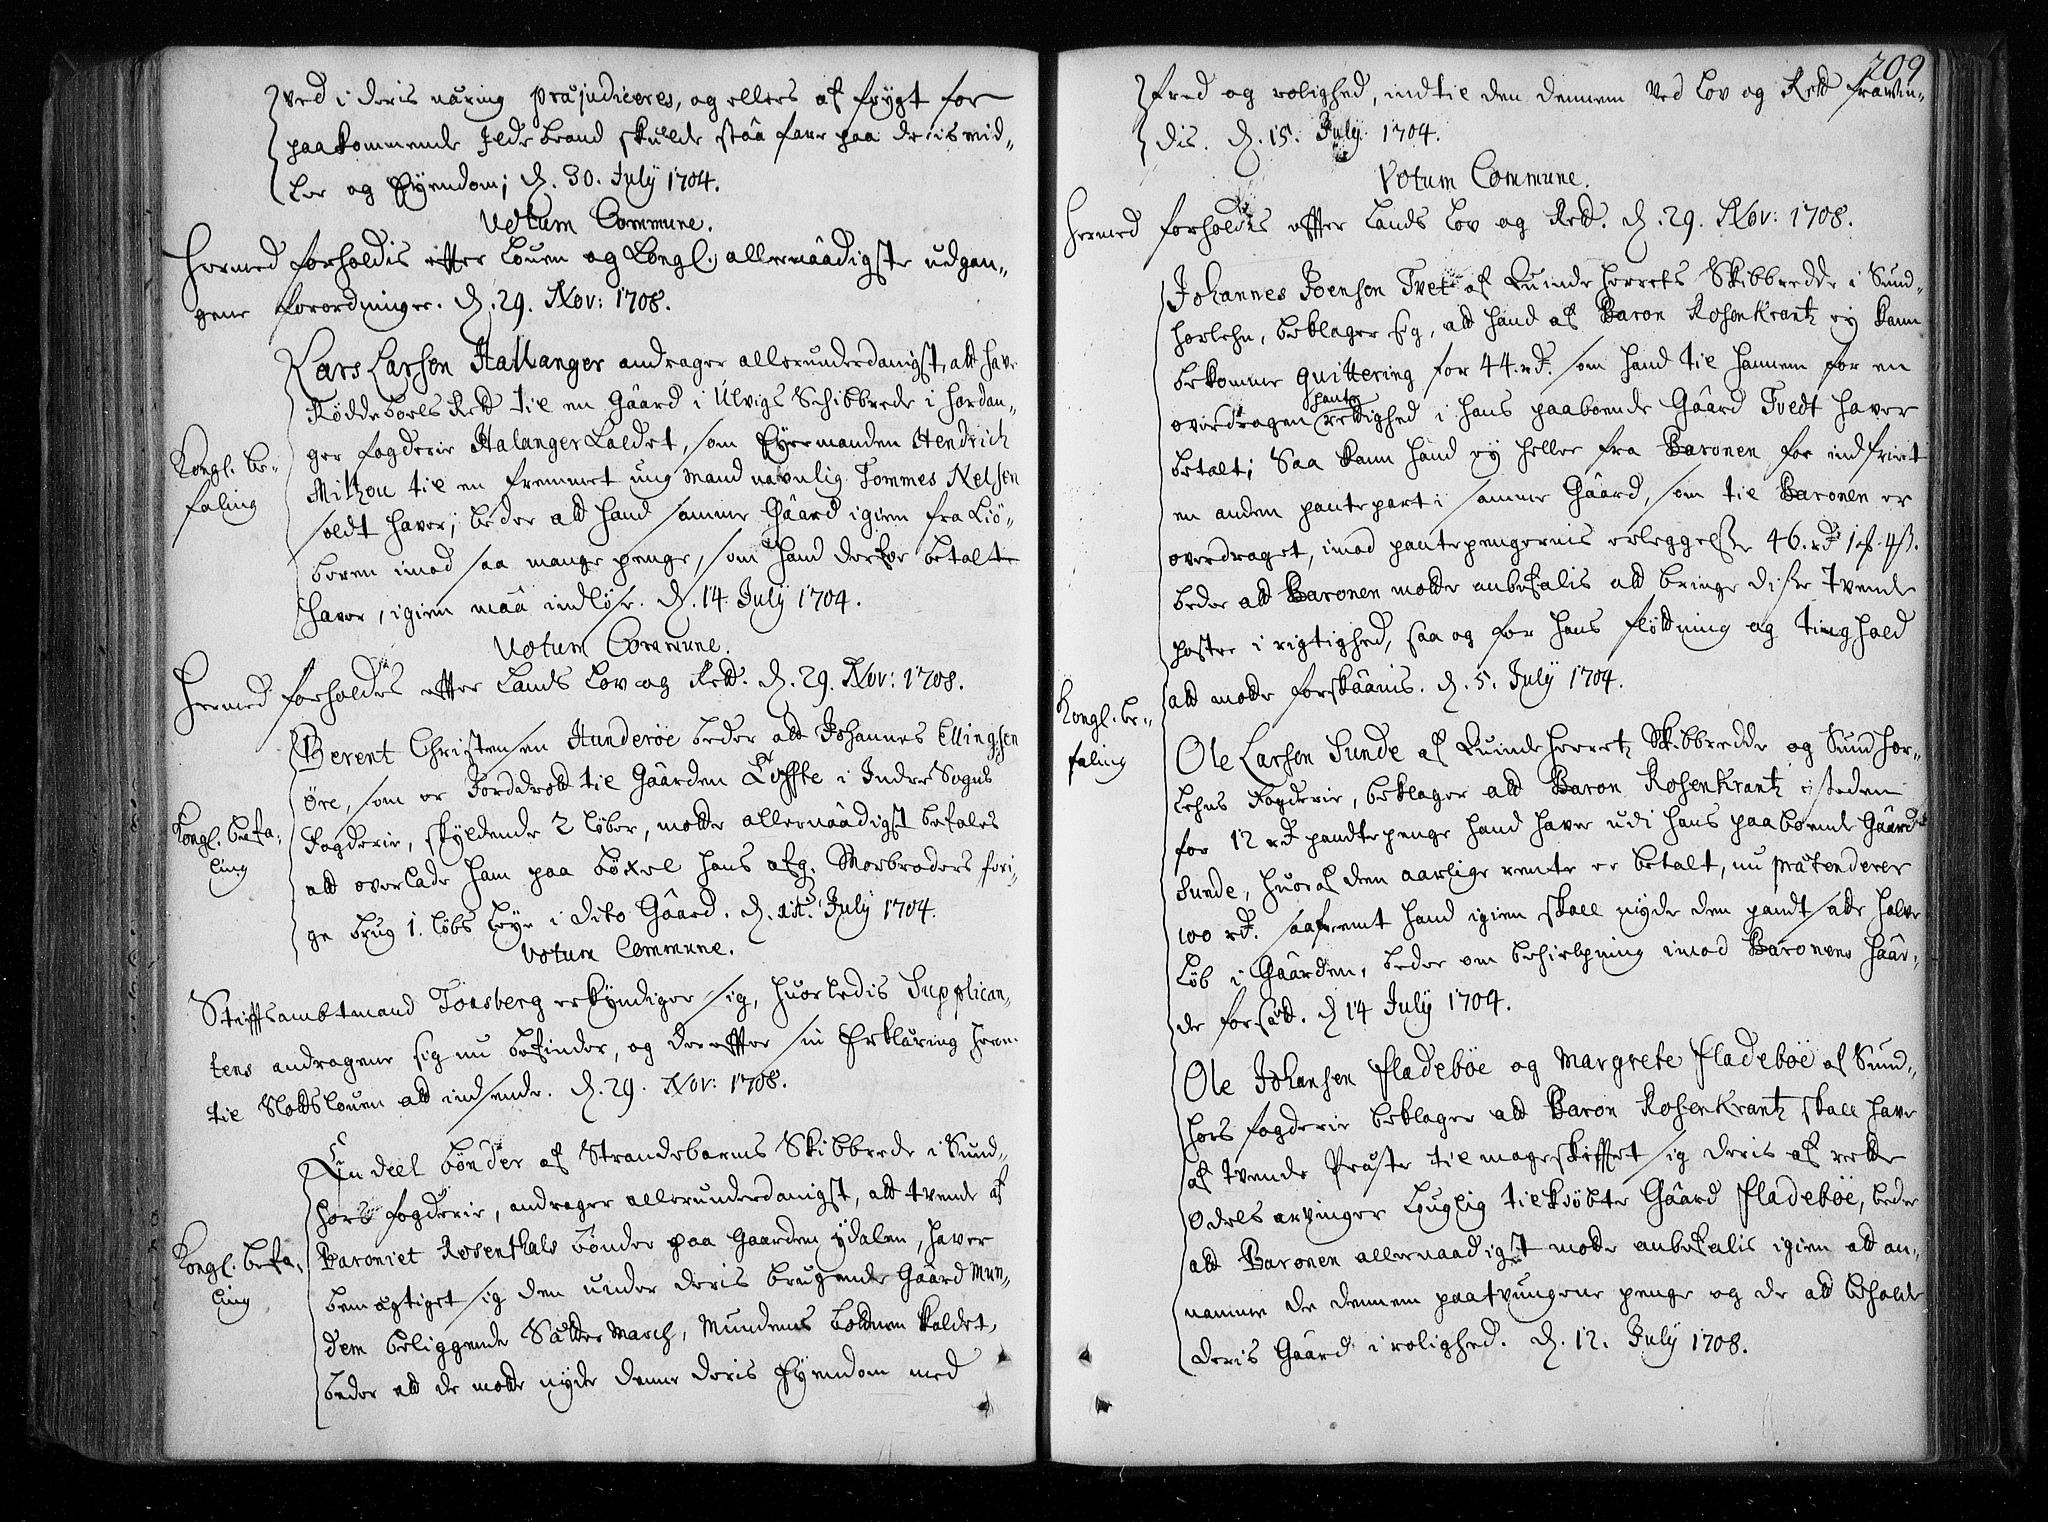 ved i deris næring præjudiceres, og ellers af frygt for
paakommende Ilde brand skulde staa fare paa deris mid-
ler og Eyendom; d. 30. July 1704.
Votum Commune.
Hermed forholdis effter Louen og Kongl. allernaadigste udgan-
gene forordninger. d. 29. Nov: 1708.
Lars Larsen Hallanger andrager allerunderdanigst, att have
Køddeboels Rett til en Gaard i Ulvigs Schibbrede i Hardan-
ger fogderie Halanger kaldet, som Eyermanden Hendrich
Kongl. be-
faling
Milhou til en fremmet ung mand navnlig Tommes Nelsen
soldt haver; beder att hand samme Gaard igien fra Kiö-
beren imod saa mange penge, som hand derfor betalt
haver, igien maa indløse. d. 14 July 1704.
Votum Commune.
Hermed forholdes effter Lands Lov og Rett. d. 29. Nov: 1708.
Berent Christensen Hunderöe beder att Johannes Ellingsen
Öre, som er Jorddrott til Gaarden Löffte i Indre Sogns
Kongl. befa-
ling
Fogderie, skyldende 2 løber, motte allernaadigst befales
att overlade ham paa bøxel hans afg. Morbroders fori-
ge brug 1. løbs leye i dito Gaard. d. 1te July 1704.
Votum Commune.
Stifftsambtmand Tonsberg erkyndiger sig, huorledis Supplican-
tens andragene sig nu befinder, og dereffter sin Erklæring her-
til Slottslouen att indsende. d. 29. Nov: 1708.
En deel bönder af Strandebarms Skibbrede i Sund-
hors fogderie, andrager allerunderdanigst, att tvende af
Kongl. befa-
ling
Baroniet Rosenthals bönder paa Gaarden ydalen, haver
bemægtiget sig den under deris brugende Gaard Mun-
dem beliggende Sætter March, Mundems boldnen kaldet,
beder att de motte nyde denne deris Eyendom med
209
fred og rolighed, indtil den dennem ved Lov og Rett fravin-
dis. d. 15. July 1704.
Votum Commune.
Hermed forholdes effter Lands Lov og Rett. d. 29. Nov: 1708.
Johannes Joensen Tvet af Quinde herrets Skibbredde i Sund-
horlehn, beklager sig, att hand af Baron Rosenkrantz ey kann
bekomme quittering for 44. rd. som hand til hannem for en
overdragen pante rettighed i hans paaboende Gaard Tvedt haver
betalt; Saa kann hand ey heller fra Baronen for indfriet
en anden pantepart i samme Gaard, som til Baronen er
overdraget, imod pantepengernis erleggelse 46. rd 1 ort 4 ß.
beder att Baronen motte anbefalis att bringe disse tvende
poster i rigtighed, saa og for hans fløttning og tinghold
att motte forskaanis. d. 5. July 1704.
Kongl. be-
faling
Ole Larsen Sunde af Quindeherretz Skibbredde og Sundhor-
lehns Fogderie, beklager att Baron Rosenkrantz i steden
for 12 rd pandtepenge hand haver udi hans paaboende Gaard
Sunde, huoraf den aarlige rente er betalt, nu prætenderer
100 rd. saafremt hand igien skall nyde den pandtsatte halve
Løb i Gaarden, beder om behielpning imod Baronens haar-
de forsæt. d 14 July 1704.
Ole Johansen fladeböe og Margrete fladeböe af Sund-
hors fogderie beklager att Baron Rosenkrantz skall have
af tvende Præste til mageskifftet sig deris af rette
Odels arvinger louglig tilkiøbte Gaard fladeböe, beder
att Baronen allernaadigst motte anbefalis igien att an-
namme de dennem paatvungene penge og de att beholde
deris Gaard i rolighed. d. 12. July 1708.